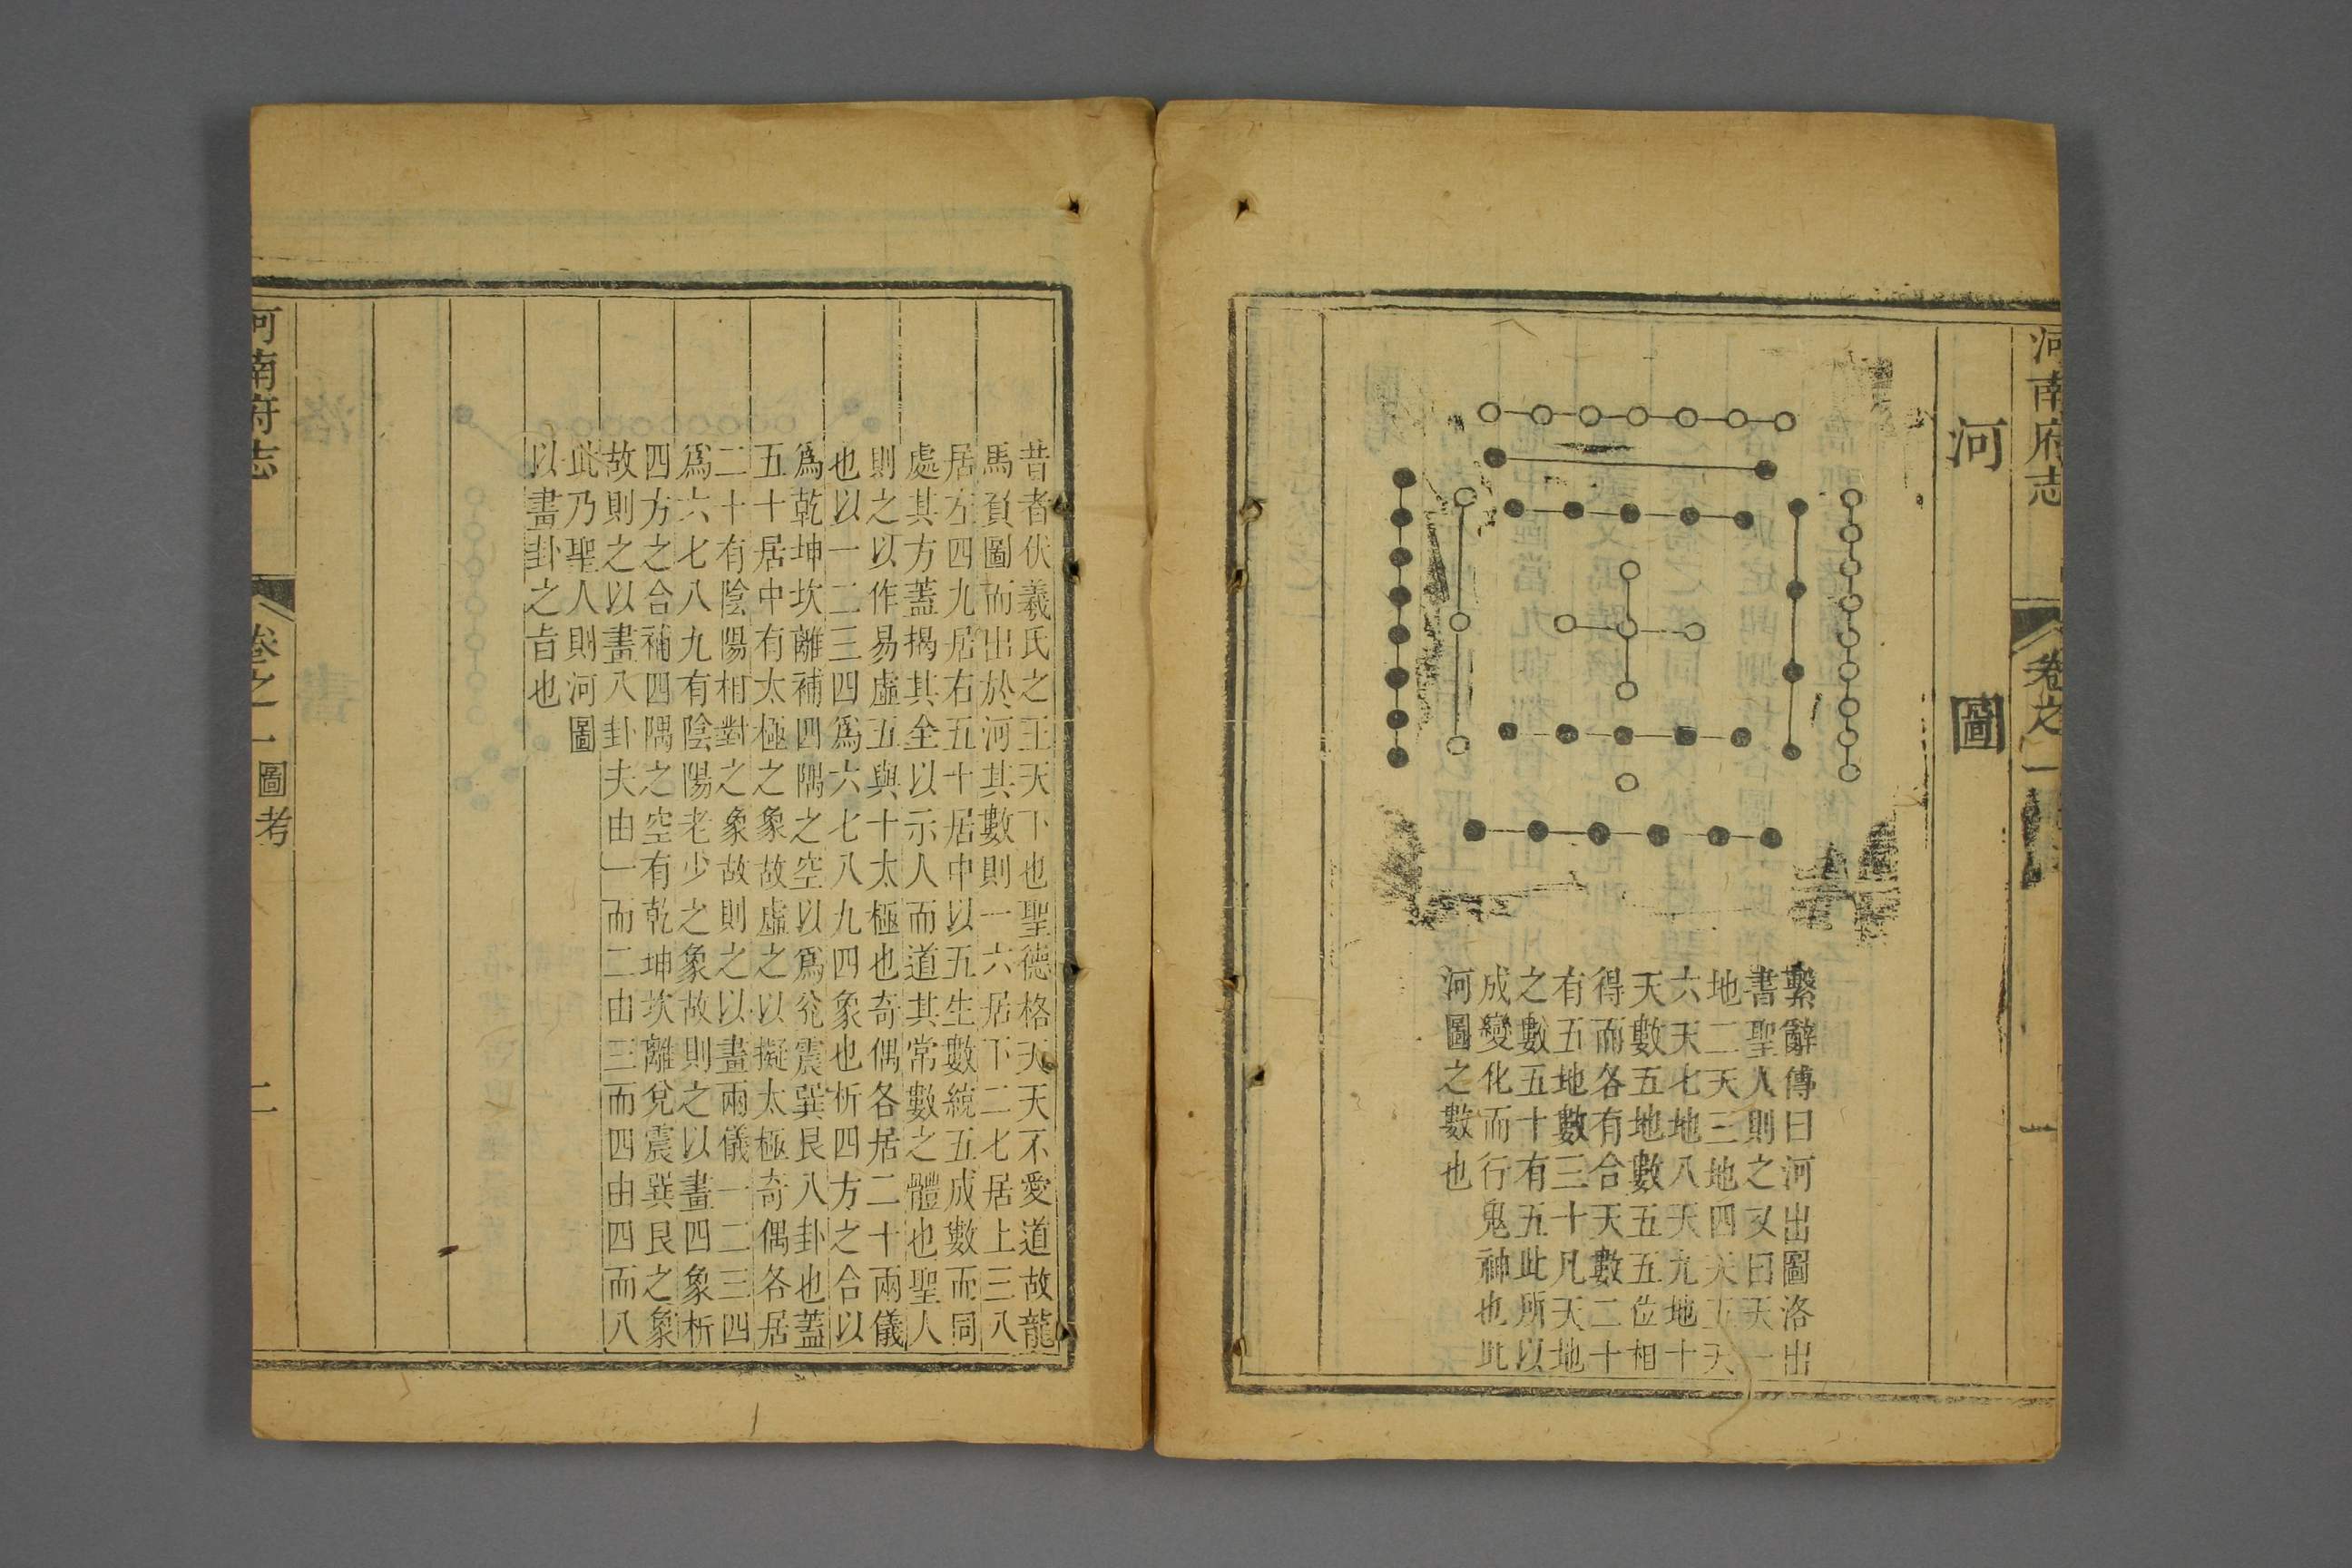 河南府志 卷之一 一
河圖
繫辭傳曰河出圖洛出
書聖人則之又曰天一
地二天三地四天五天
六天七地八天九地十
天數五地數五五位相
得而各有合天數二十
有五地數三十凡天地
之數五十有五此所以
成變化而行鬼神也此
河圖之數也
昔者伏羲氏之王天下也聖德格天天不愛道故龍
馬負圖而出於河其數則一六居下二七居上三八
居左四九居右五十居中以五生數統五成數而同
處其方蓋揭其全以示人而道其常數之體也聖人
則之以作易虛五與十太極也奇偶各居二十兩儀
也以一二三四爲六七八九四象也析四方之合以
爲乾坤坎離補四隅之空以爲兊震巽艮八卦也蓋
五十居中有太極之象故虛之以擬太極奇偶各居
二十有陰陽相對之象故則之以畫兩儀一二三四
爲六七八九有陰陽老少之象故則之以畫四象析
四方之合補四隅之空有乾坤坎離兌震巽艮之象
故則之以畫八卦夫由一而二由三而四由四而八
此乃聖人則河圖
以畫卦之旨也
河南府志 卷之一 圖考 二